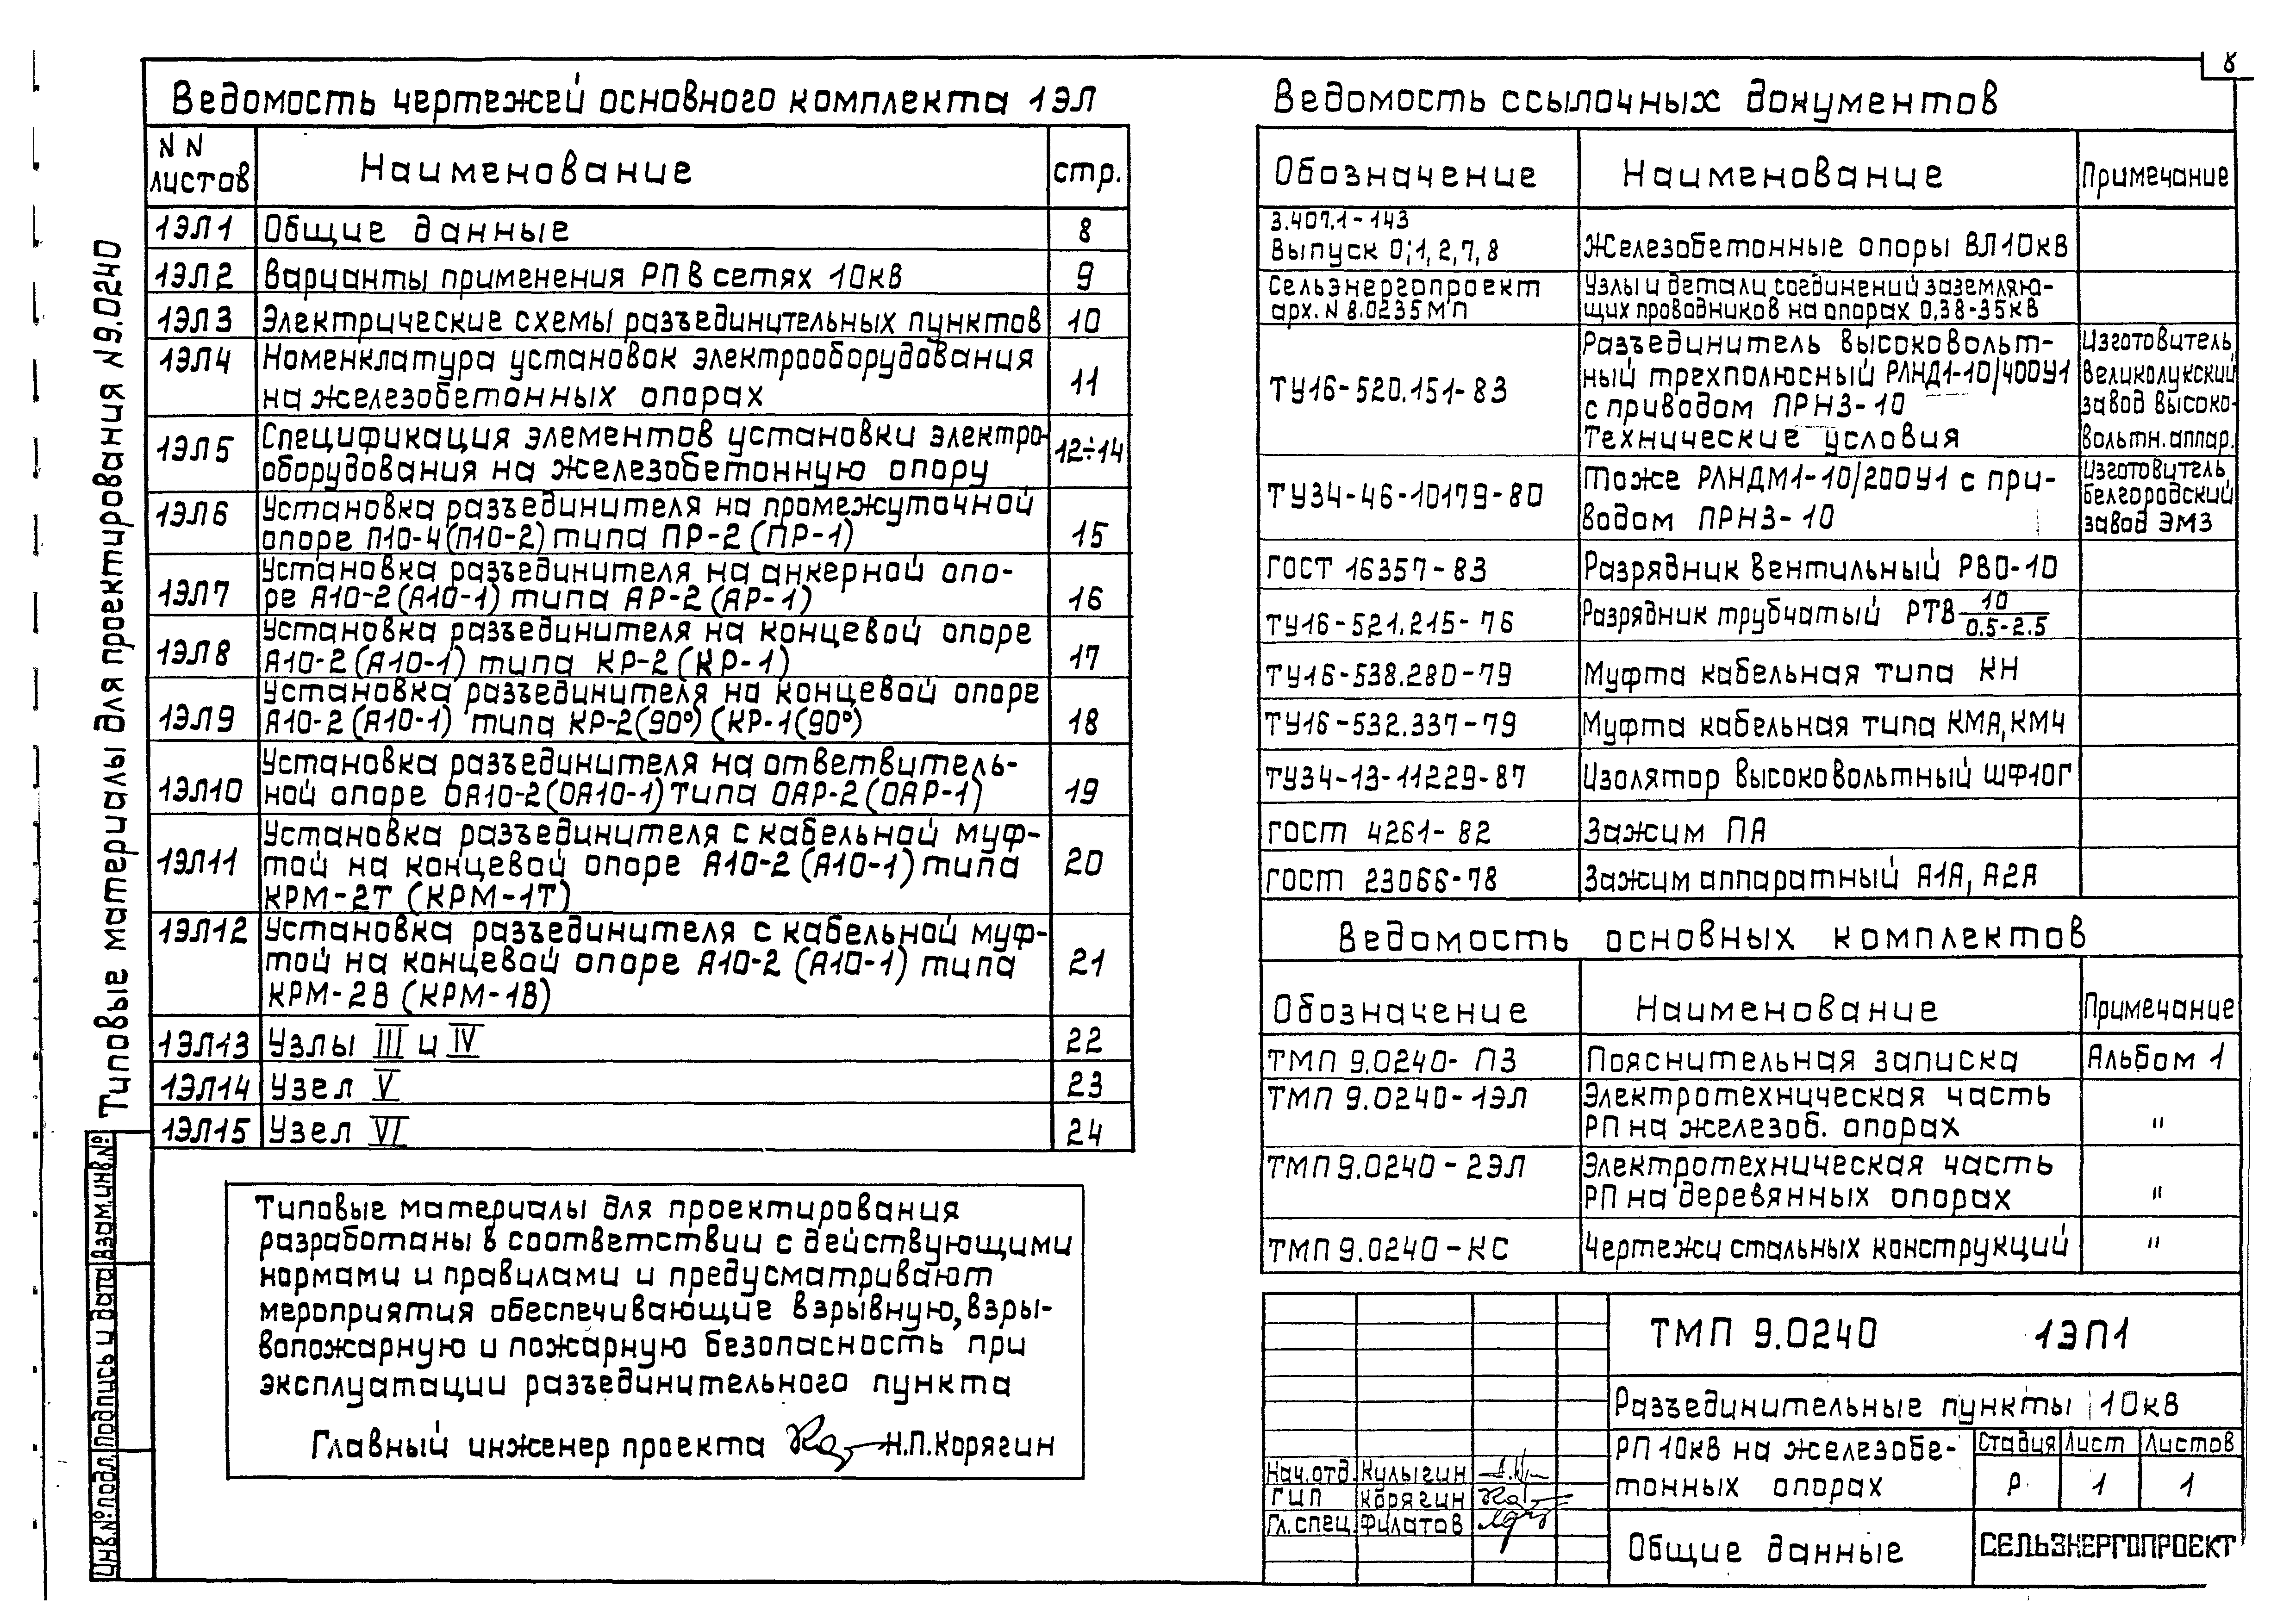 8
Ведомость чертежей основного комплекта 1ЭЛ
NN листов
Наименование
стр.
1ЭЛ1 Общие данные 8
1ЭЛ2 Варианты применения РП в сетях 10кв 9
1ЭЛ3 Электрические схемы разъединительных пунктов 10
1ЭЛ4 Номенклатура установок электрооборудования
на железобетонных опорах 11
1ЭЛ5 Спецификация элементов установки электро-
оборудования на железобетонную опору 12÷14
1ЭЛ6 Установка разъединителя на промежуточной
опоре П10-4(П10-2) типа ПР-2 (ПР-1) 15
1ЭЛ7 Установка разъединителя на анкерной опо-
ре А10-2 (А10-1) типа АР-2 (АР-1) 16
1ЭЛ8 Установка разъединителя на концевой опоре
А10-2 (А10-1) типа КР-2 (КР-1) 17
1ЭЛ9 Установка разъединителя на концевой опоре
А10-2 (А10-1) типа КР-2(90°) (КР-1(90°) 18
1ЭЛ10 Установка разъединителя на ответвитель-
ной опоре ОА10-2 (ОА10-1) типа ОАР-2 (ОАР-1) 19
1ЭЛ11 Установка разъединителя с кабельной муф-
той на концевой опоре А10-2 (А10-1) типа 20
КРМ-2Т (КРМ-1Т)
1ЭЛ12 Установка разъединителя с кабельной муф-
той на концевой опоре А10-2 (А10-1) типа 21
КРМ-2В (КРМ-1В)
1ЭЛ13 Узлы III и IV 22
1ЭЛ14 Узел V 23
1ЭЛ15 Узел VI 24
Типовые материалы для проектирования
разработаны в соответствии с действующими
нормами и правилами и предусматривают
мероприятия обеспечивающие взрывную, взры-
вопожарную и пожарную безопасность при
эксплуатации разъединительного пункта
Главный инженер проекта Н.П.Корягин
Типовые материалы для проектирования N9.0240
Взам.инв.№
Подпись и дата
Инв.№ подл.
Ведомость ссылочных документов
Обозначение Наименование Примечание
3.407.1-143
Выпуск 0;1,2,7,8 Железобетонные опоры ВЛ10кв
Сельэнергопроект Узлы и детали соединений заземляю-
арх. N 8.0235МП щих проводников на опорах 0,38-35кв
Разъединитель высоковольт- Изготовитель
ТУ16-520.151-83 ный трехполюсный РЛНД1-10/400У1 Великолукский
с приводом ПРНЗ-10 завод высоко-
Технические условия вольтн.аппар.
То же РЛНДМ1-10/200У1 с при- Изготовитель
ТУ34-46-10179-80 водом ПРНЗ-10 Белгородский
завод ЭМЗ
ГОСТ 16357-83 Разрядник вентильный РВО-10
ТУ16-521.215-76 Разрядник трубчатый РТВ 10/0.5-2.5
ТУ16-538.280-79 Муфта кабельная типа КН
ТУ16-532.337-79 Муфта кабельная типа КМА,КМЧ
ТУ34-13-11229-87 Изолятор высоковольтный ШФ10Г
ГОСТ 4261-82 Зажим ПА
ГОСТ 23066-78 Зажим аппаратный А1А, А2А
Ведомость основных комплектов
Обозначение Наименование Примечание
ТМП 9.0240-ПЗ Пояснительная записка Альбом 1
ТМП 9.0240-1ЭЛ Электротехническая часть
РП на железоб. опорах "
ТМП 9.0240-2ЭЛ Электротехническая часть
РП на деревянных опорах "
ТМП 9.0240-КС Чертежи стальных конструкций "
ТМП 9.0240 1ЭЛ1
Разъединительные пункты 10кв
РП 10кв на железобе-
тонных опорах
Стадия Лист Листов
Р 1 1
Нач.отд. Кулыгин
ГИП Корягин
Гл.спец. Филатов
Общие данные
СЕЛЬЭНЕРГОПРОЕКТ